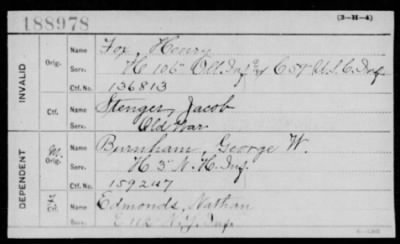 188978
(3-H-4)
INVALID
Orig.
Name Fox, Henry
Serv. H 105" Ill Inf & C 59" U.S.C. Inf
Ctf. No. 136813
Ctf.
Name Stenger, Jacob
Serv. Old War
DEPENDENT
M. Orig.
Name Burnham, George W.
Serv. H 5" N.H. Inf.
Ctf. No. 159247
Ctf.
Name Edmonds, Nathan
Serv. E 112 N.Y. Inf.